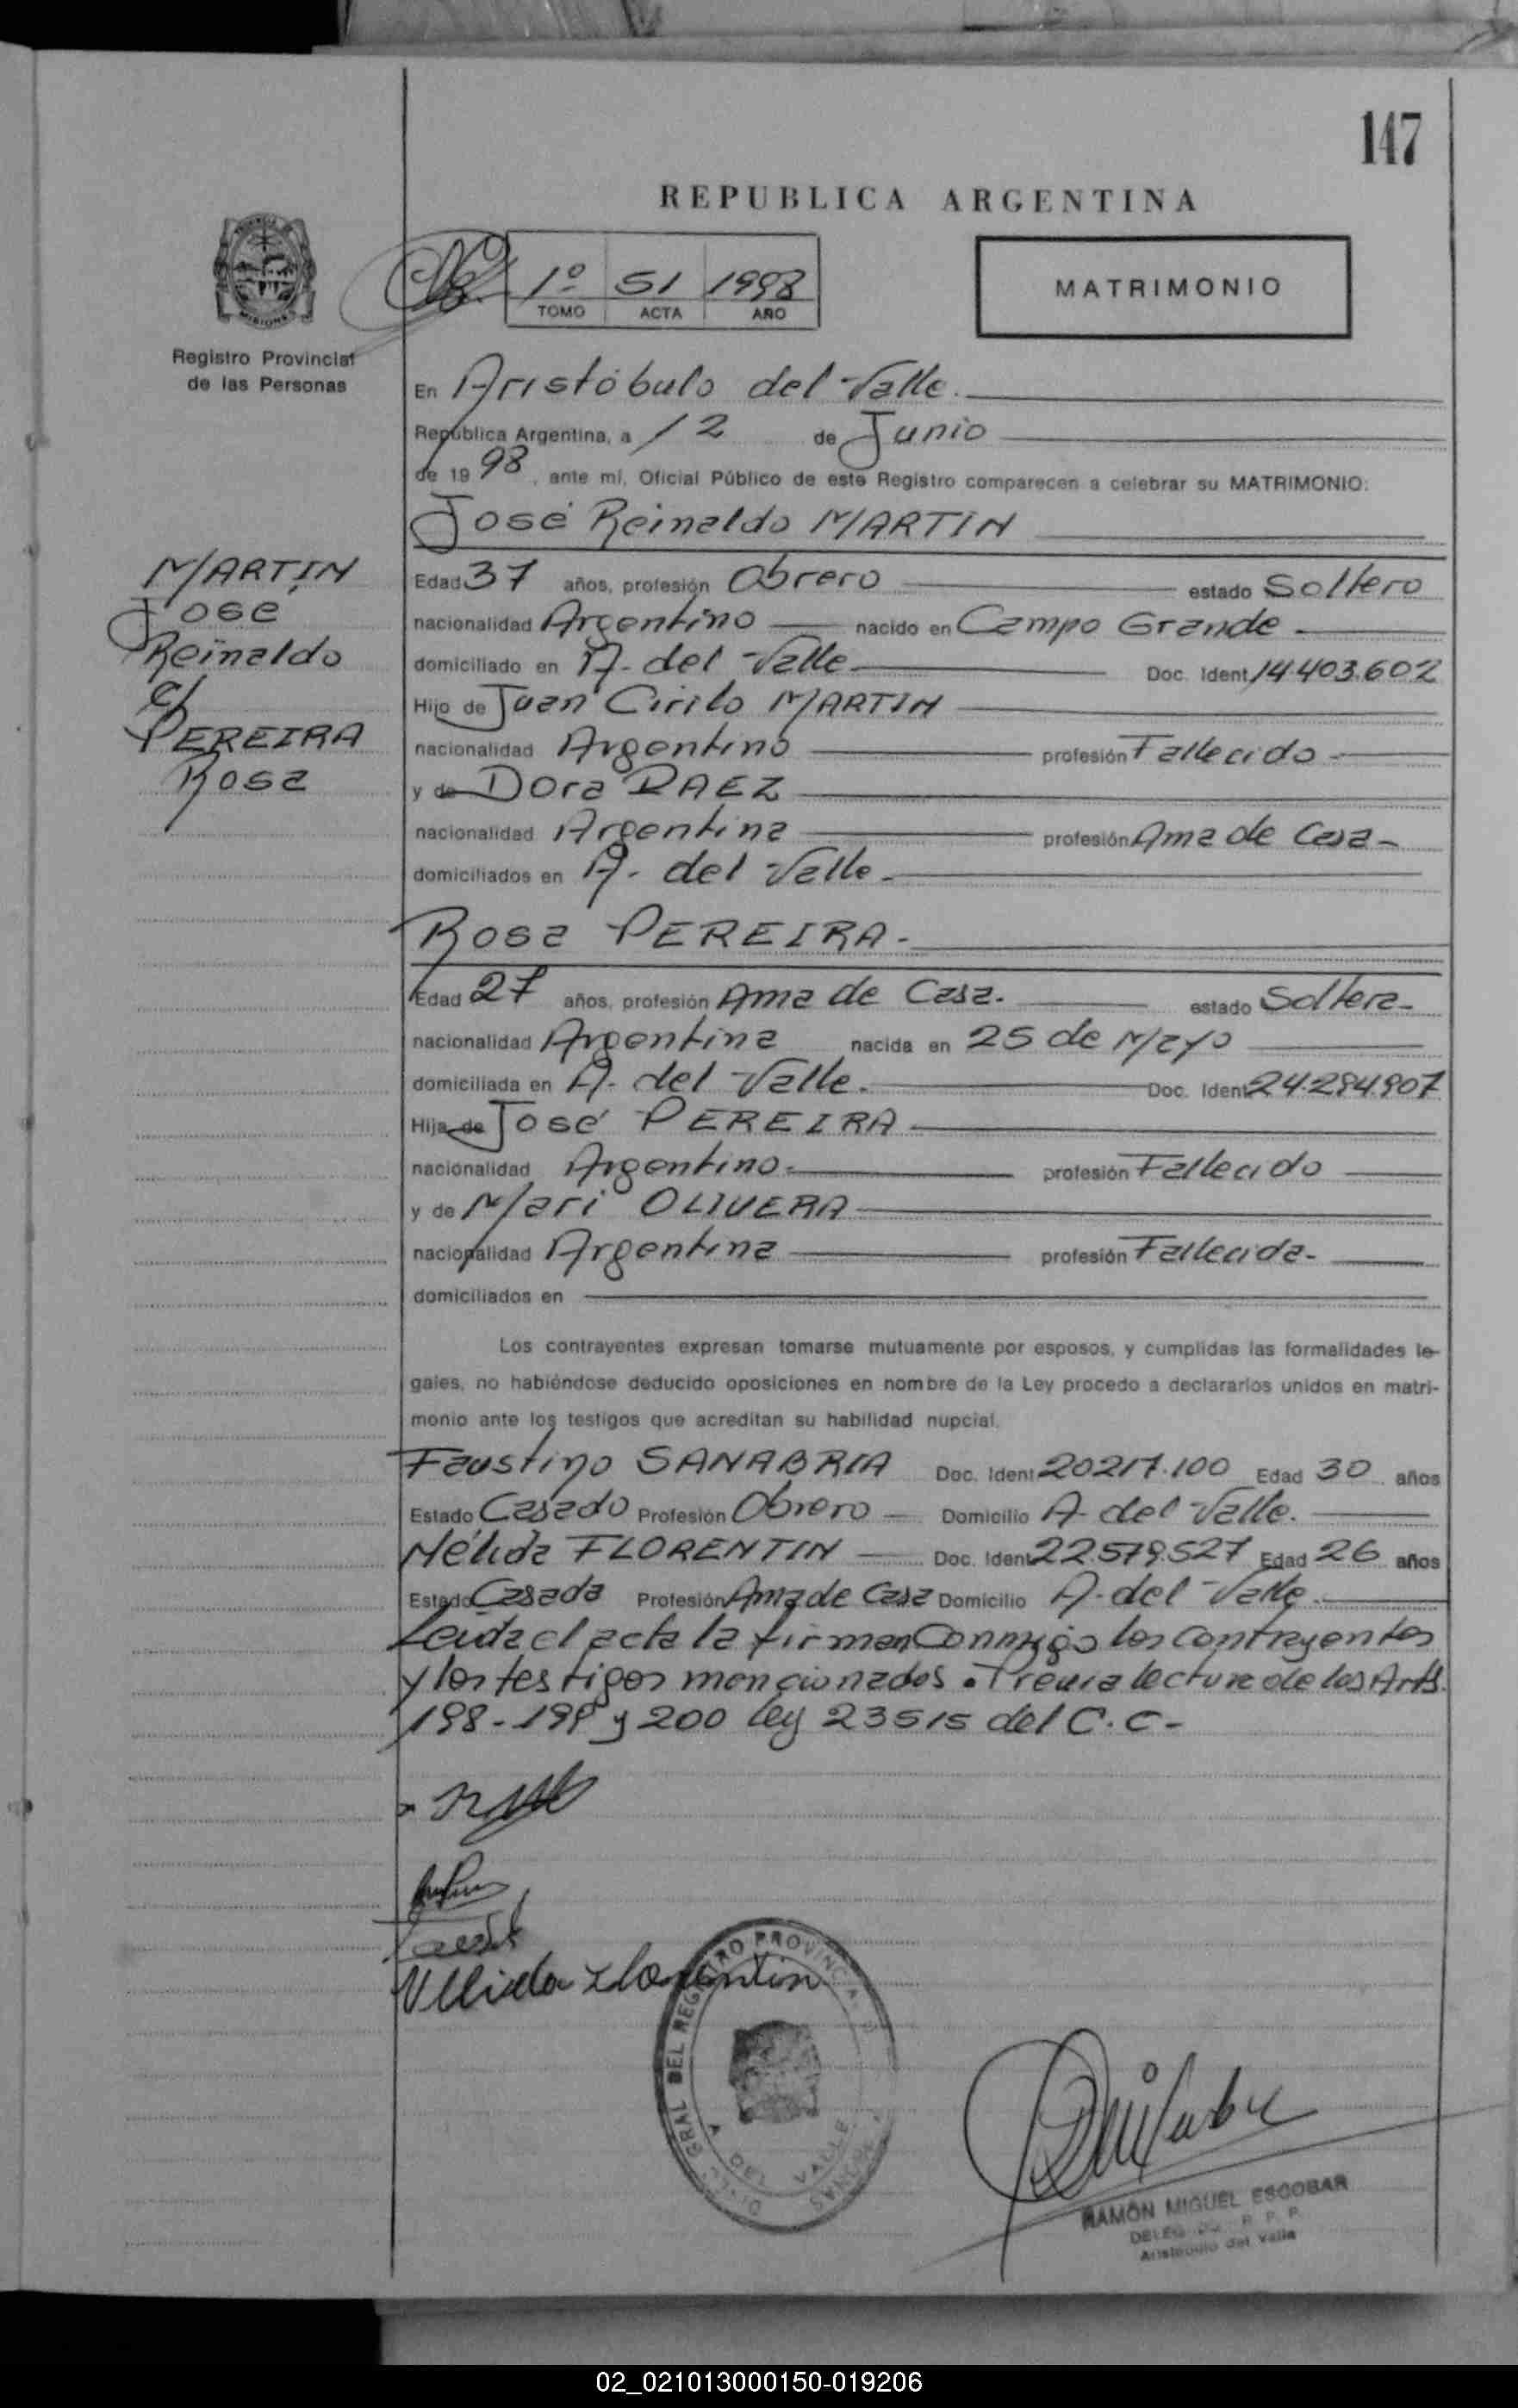 147
REPUBLICA ARGENTINA
1º 51 1998
TOMO ACTA AÑO
MATRIMONIO
MISIONES
Registro Provincial
de las Personas
En Aristóbulo del Valle.
República Argentina, a 12 de Junio
de 19 98, ante mí, Oficial Público de este Registro comparecen a celebrar su MATRIMONIO:
José Reinaldo MARTIN
MARTIN
José
Reinaldo
c/
PEREIRA
Rosa
Edad 37 años, profesión Obrero estado Soltero
nacionalidad Argentino nacido en Campo Grande
domiciliado en A. del Valle Doc. Ident. 14.403.602
Hijo de Juan Cirilo MARTIN
nacionalidad Argentino profesión Fallecido
y de Dora
nacionalidad Argentina profesión Ama de Casa-
domiciliados en A. del Valle-
Rosa PEREIRA-
Edad 27 años, profesión Ama de Casa. estado Soltera-
nacionalidad Argentina nacida en 25 de Mayo
domiciliada en A. del Valle. Doc. Ident.
Hija de José PEREIRA
nacionalidad Argentino. profesión Fallecido
y de Mari OLIVERA
nacionalidad Argentina profesión Fallecida-
domiciliados en
Los contrayentes expresan tomarse mutuamente por esposos, y cumplidas las formalidades le-
gales, no habiéndose deducido oposiciones en nombre de la Ley procedo a declararlos unidos en matri-
monio ante los testigos que acreditan su habilidad nupcial.
Faustino SANABRIA Doc. Ident. 20217.100 Edad 30 años
Estado Casado Profesión Obrero Domicilio A. del Valle.
Nélida FLORENTIN Doc. Ident. 22.579.527 Edad 26 años
Estado Casada Profesión Ama de Casa Domicilio A. del Valle.
Leida el acta la firman Conmigo los contrayentes
y los testigos mencionados. Previa lectura de los Arts.
198-199 y 200 ley 23515 del C.C-
Nelida Florentin
GRAL DEL REGISTRO PROVINCIAL
A DEL VALLE
RAMÓN MIGUEL ESCOBAR
R. P. P.
Aristóbulo del Valle
02_021013000150-019206